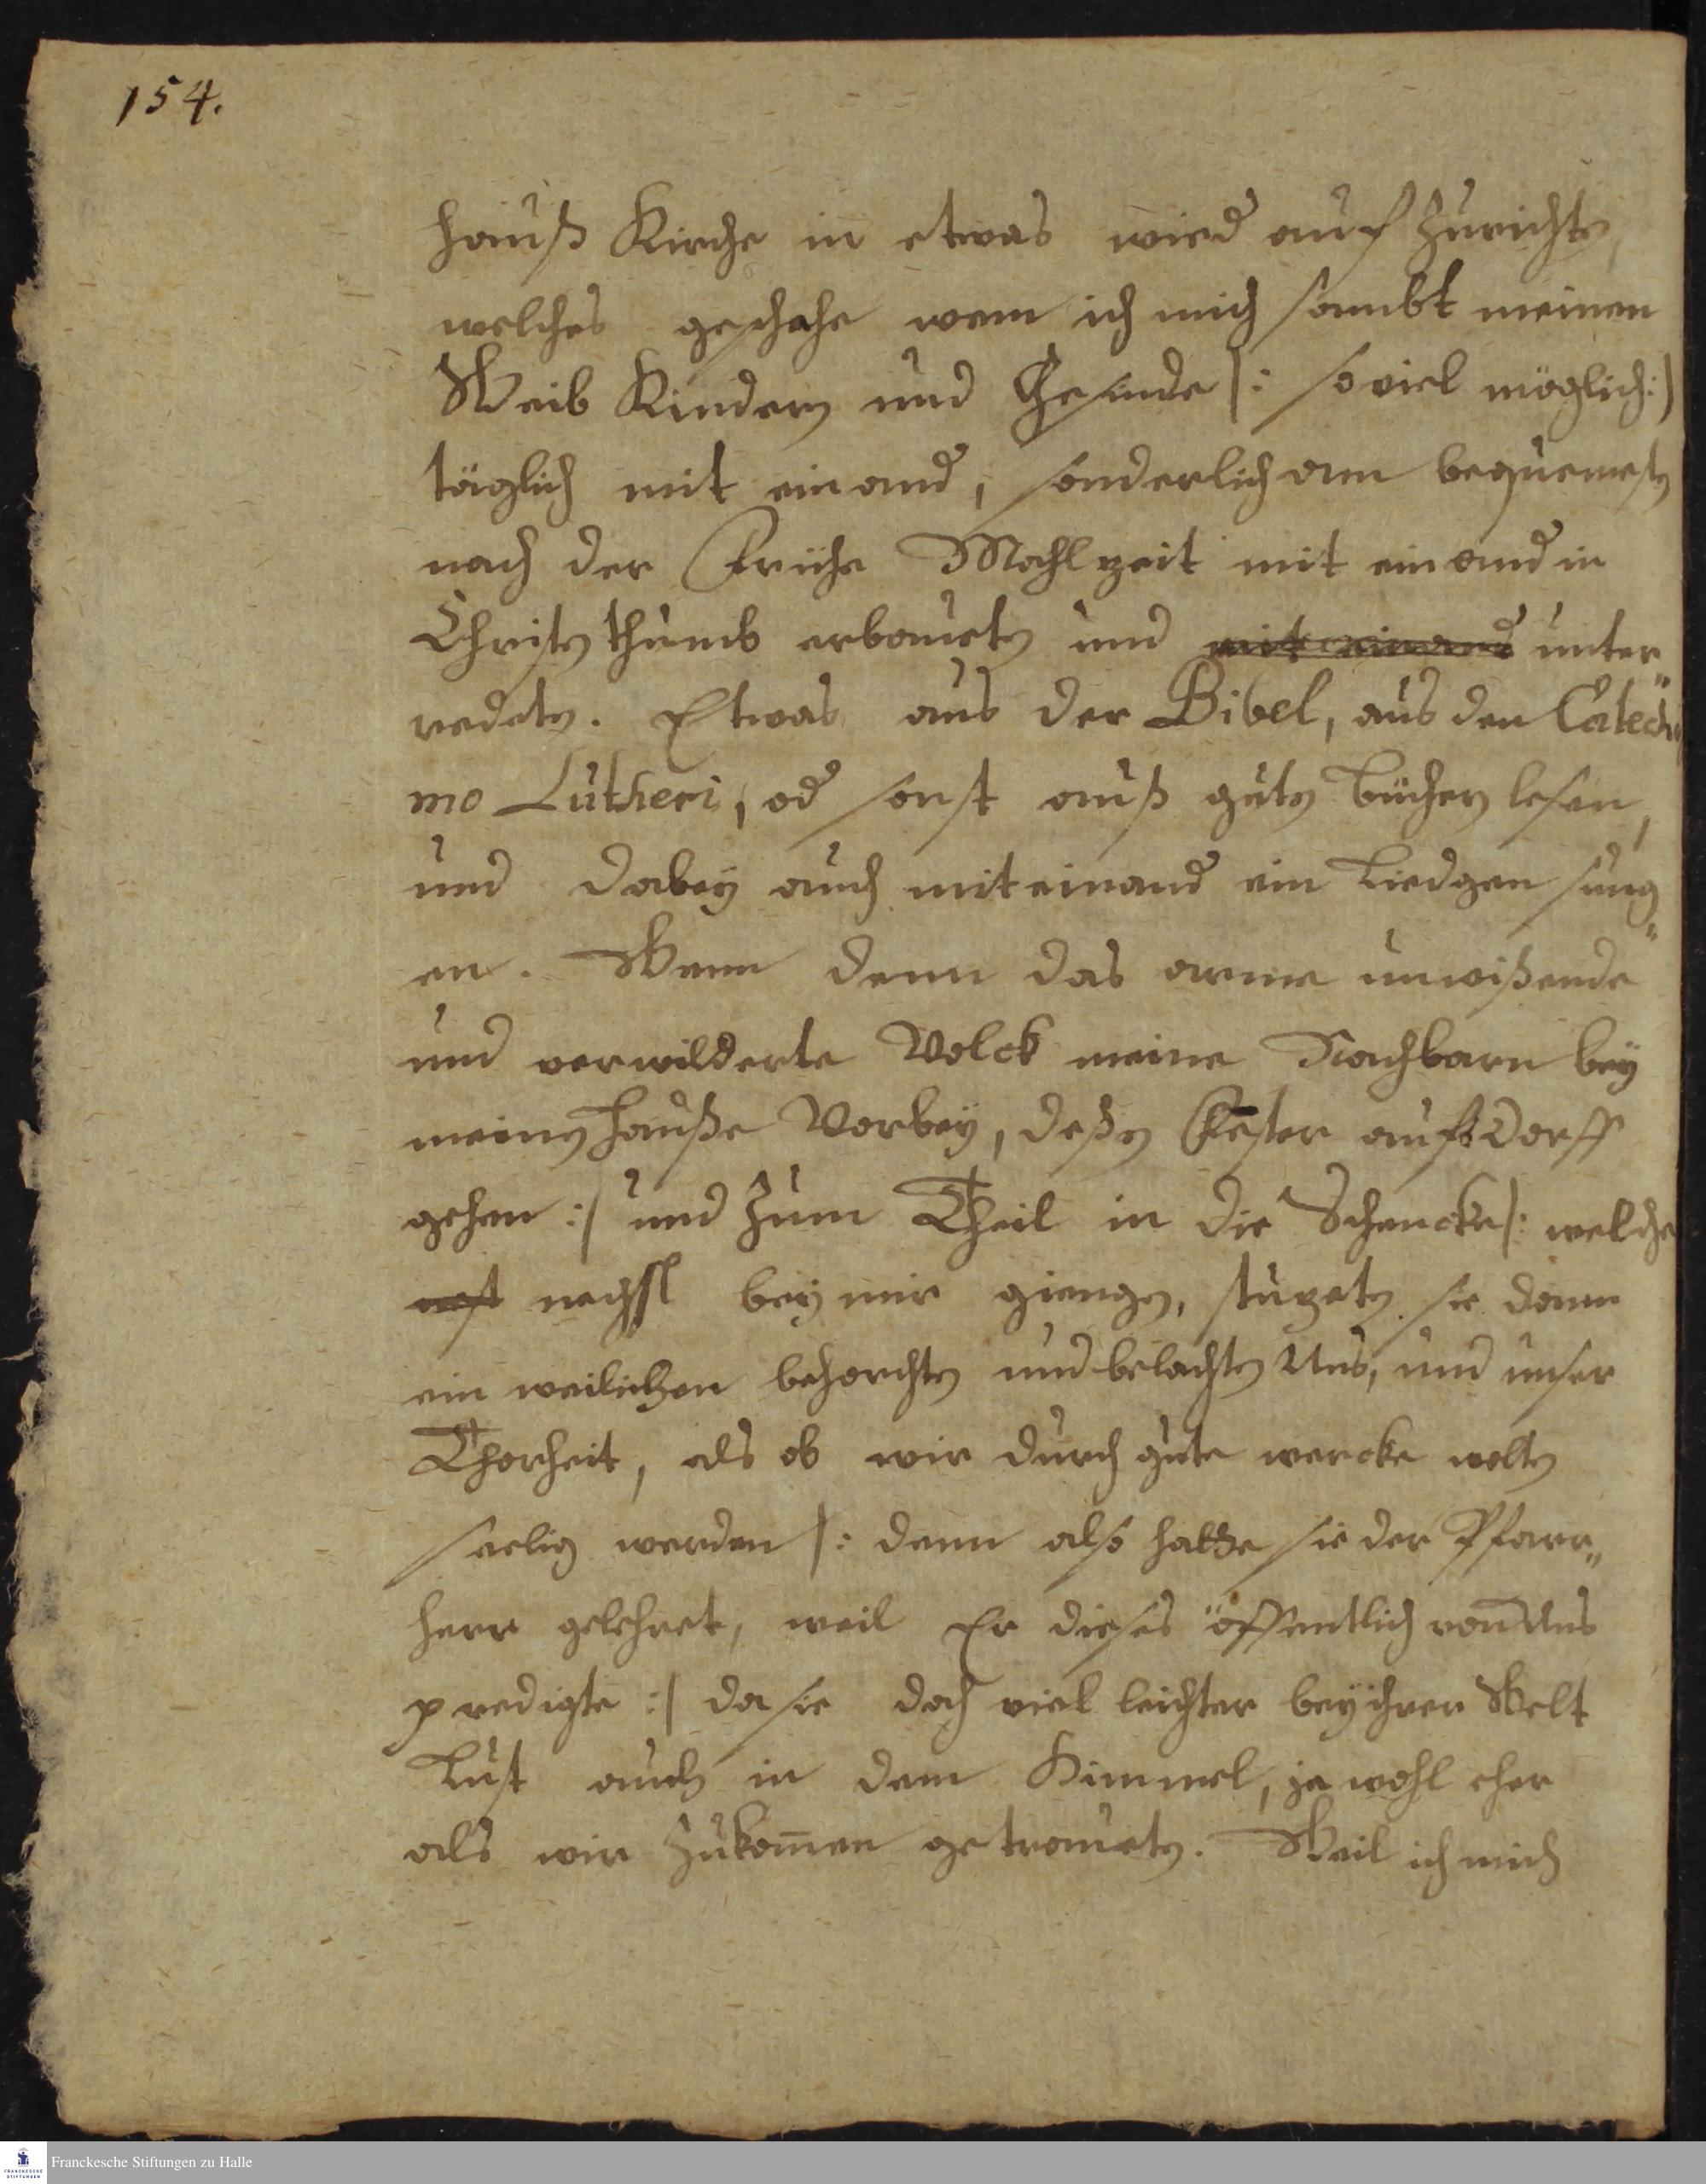 154.
hauß Kirche in etwas wied auf Zurichten,
welches geschahe wenn ich mich sambt meinen
Weib Kindern und Gesinde |: so viel möglich :|
täglich mit einand, sonderlich am bequemesten
nach der Frühe Mahlzeit mit einand in
Christenthumb erbaueten und mit einand unter„
redeten. Etwas aus der Bibel, aus den Catechis
mo Lutheri, od sonst auß guten Büchern lesen,
und dabey auch mit einand ein Liedgen sung„
en. Wenn denn das arme unwißende
und verwilderte Volck meine Nachbarn bey
meinen Hauße Vorbey, deßen Fester aufs Dorff
gehen :| und Zum Theil in die Schencke |: welche
nechst bey mir giengen, stuzeten sie dann
ein weilichen behorchten und belachten Uns, und unser
Thorheit, als ob wir durch gute wercke wolten
seelig werden |: denn also hatte sie der Pfarr„
herr gelehret, weil Er dieses öffentlich von Uns
predigte :| da sie doch viel leichter bey ihrer Welt
Lust auch in dem Himmel, ja wohl eher
als wir Zukom̄en getraueten. Weil ich mich
Franckesche Stiftungen zu Halle